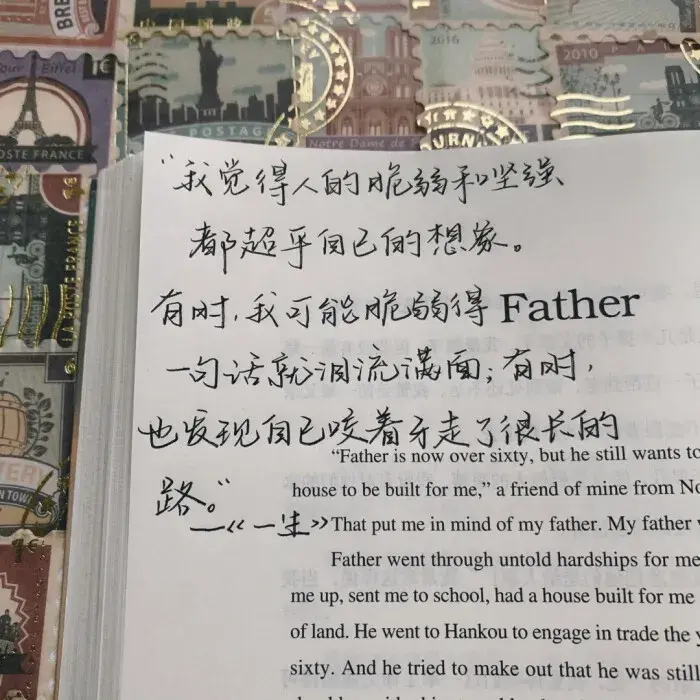 2016
2010
POSTE FRANCE
POSTAGE
Notre Dame de
LA POSTE FRANCE
“我觉得人的脆弱和坚强
都超乎自己的想象。
有时,我可能脆弱得 Father
一句话就泪流满面;有时,
也发现自己咬着牙走了很长的
路。”
—《一生》
“Father is now over sixty, but he still wants to
house to be built for me,” a friend of mine from No
That put me in mind of my father. My father
Father went through untold hardships for me
me up, sent me to school, had a house built for me
of land. He went to Hankou to engage in trade the y
sixty. And he tried to make out that he was still